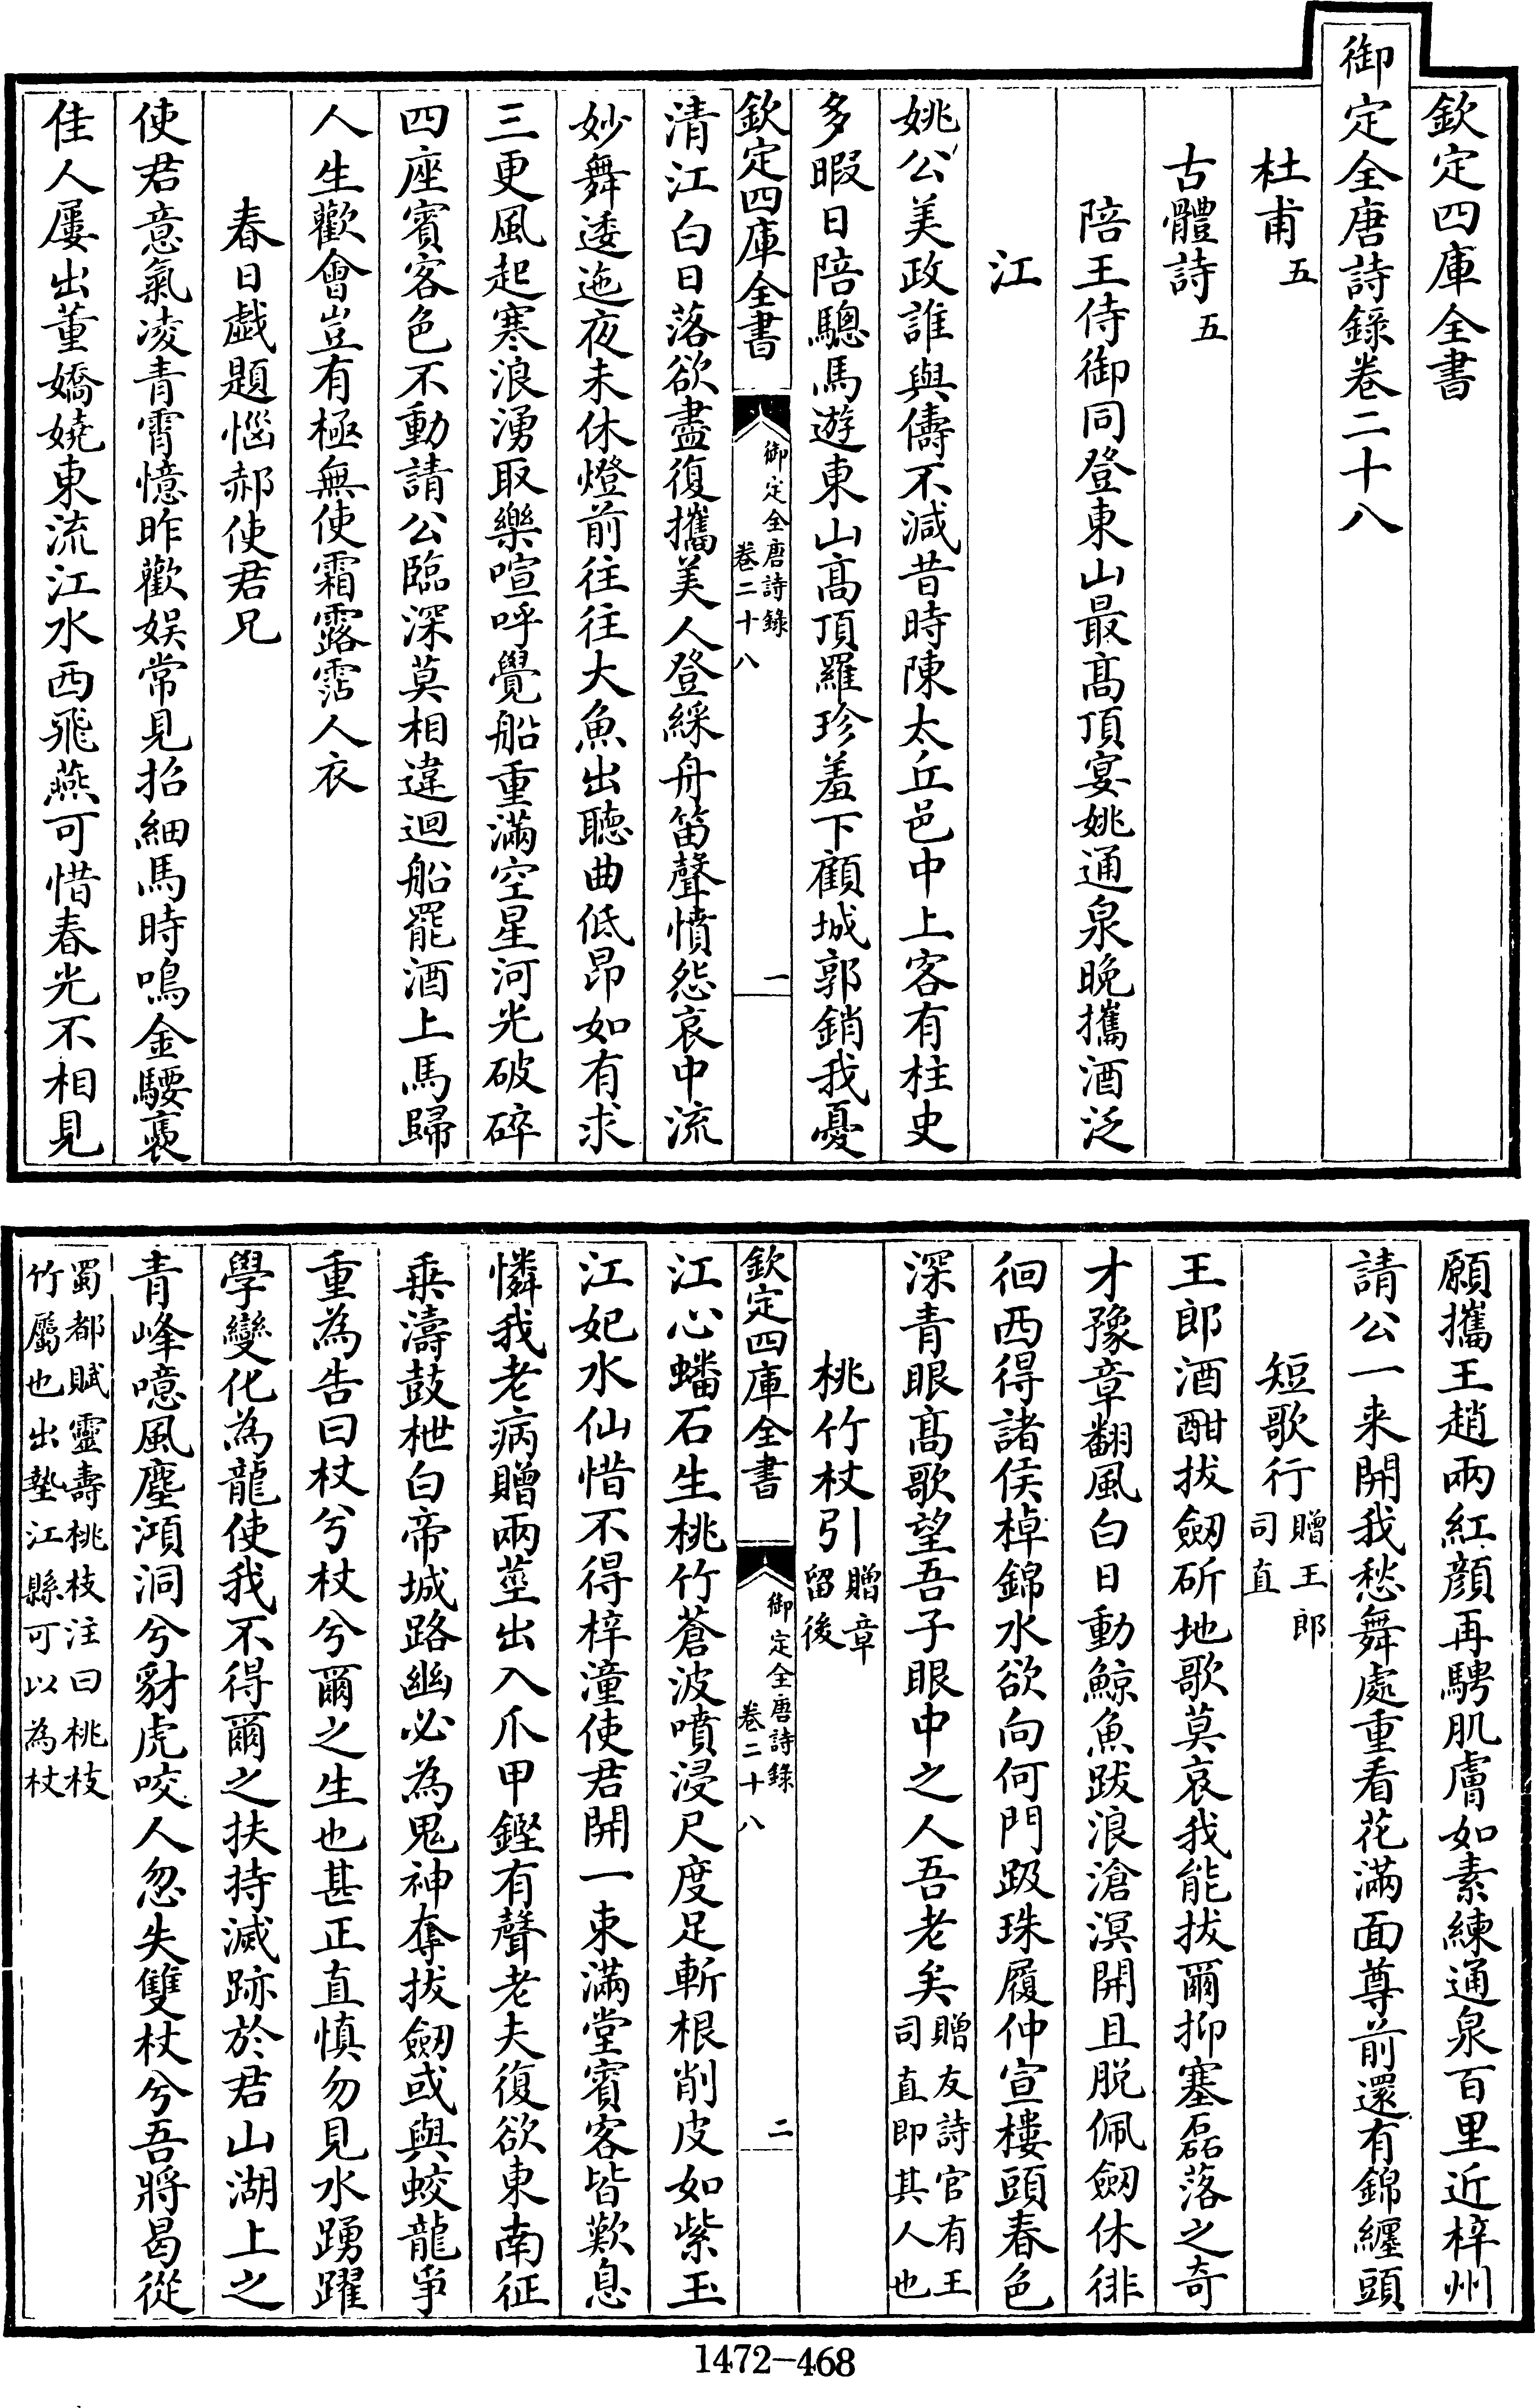 欽定四庫全書
御定全唐詩錄卷二十八
杜甫五
古體詩五
陪王侍御同登東山最髙頂宴姚通泉晚攜酒泛
江
姚公美政誰與儔不減昔時陳太丘邑中上客有柱史
多暇日陪驄馬遊東山髙頂羅珍羞下顧城郭銷我憂
欽定四庫全書
御定全唐詩錄
卷二十八
一
清江白日落欲盡復攜美人登綵舟笛聲憤怨哀中流
妙舞逶迤夜未休燈前往往大魚出聽曲低昂如有求
三更風起寒浪湧取樂喧呼覺船重滿空星河光破碎
四座賓客色不動請公臨深莫相違迴船罷酒上馬歸
人生歡會豈有極無使霜露霑人衣
春日戲題惱郝使君兄
使君意氣凌青霄憶昨歡娛常見招細馬時鳴金騕褭
佳人屢出董嬌嬈東流江水西飛燕可惜春光不相見
願攜王趙兩紅顔再騁肌膚如素練通泉百里近梓州
請公一来開我愁舞處重看花滿面尊前還有錦纏頭
短歌行
贈王郎
司直
王郎酒酣拔劒斫地歌莫哀我能拔爾抑塞磊落之奇
才豫章翻風白日動鯨魚跋浪滄溟開且脱佩劒休徘
徊西得諸侯棹錦水欲向何門趿珠履仲宣樓頭春色
深青眼髙歌望吾子眼中之人吾老矣
贈友詩官有王
司直即其人也
桃竹杖引
贈章
留後
欽定四庫全書
御定全唐詩錄
卷二十八
二
江心蟠石生桃竹蒼波噴浸尺度足斬根削皮如紫玉
江妃水仙惜不得梓潼使君開一束滿堂賓客皆歎息
憐我老病贈兩莖出入爪甲鏗有聲老夫復欲東南征
乗濤鼓枻白帝城路幽必為鬼神奪拔劒或與蛟龍爭
重為告曰杖兮杖兮爾之生也甚正直慎勿見水踴躍
學變化為龍使我不得爾之扶持滅跡於君山湖上之
青峰噫風塵澒洞兮豺虎咬人忽失雙杖兮吾將曷從
蜀都賦靈壽桃枝注曰桃枝
竹屬也出墊江縣可以為杖
1472-468